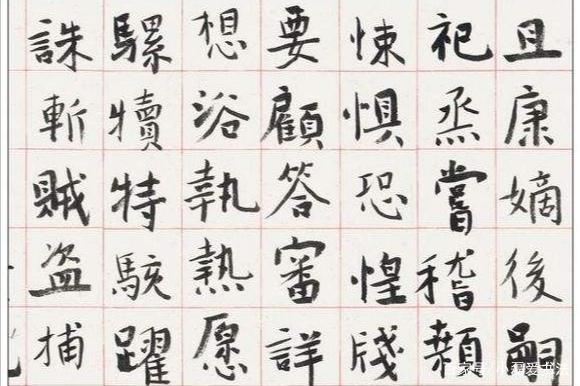 且康嫡後嗣
祀烝嘗稽顙
悚惧恐惶牋
要顧答審詳
想浴執熱愿
騾犢特駭躍
誅斬賊盗捕
爱书法